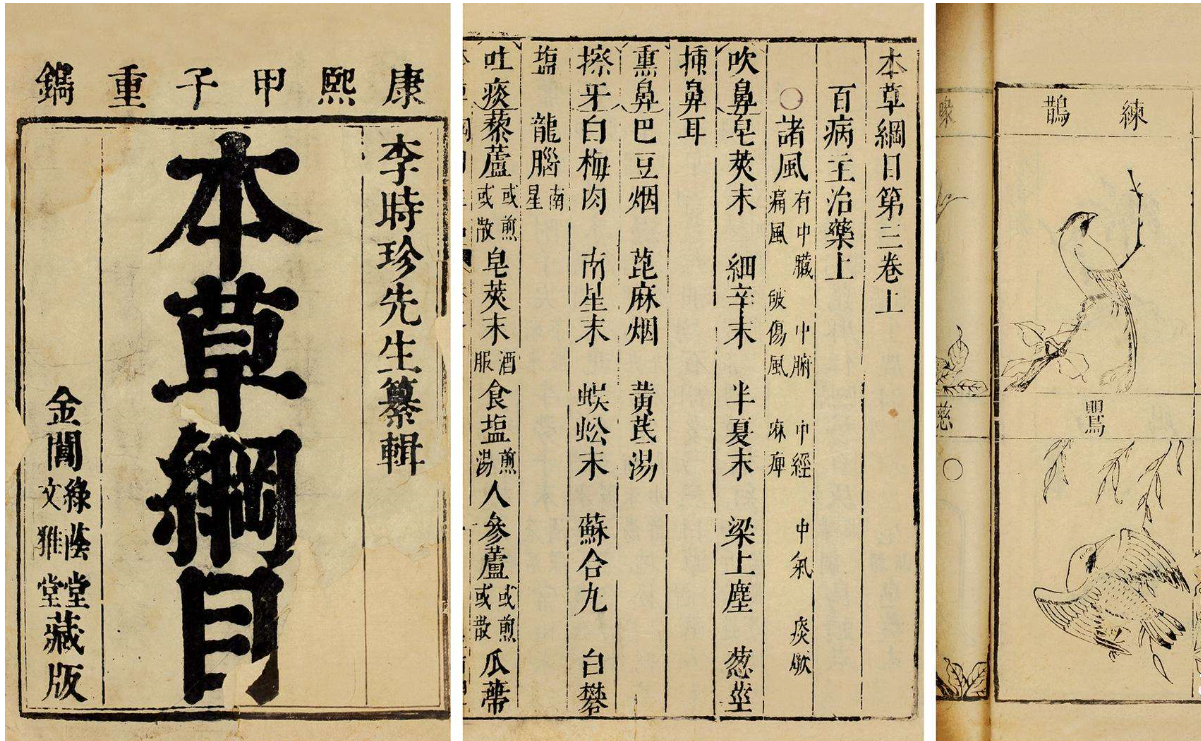 康熙甲子重鐫
李時珍先生纂輯
本草綱目
金閶
綠蔭堂
文雅堂
藏版
本草綱目第三卷上
百病主治藥上
○諸風有中臟 中腑 中經 中氣 痰厥
痛風 破傷風 麻痺
吹鼻皂莢末 細辛末 半夏末 梁上塵 葱莖
插鼻耳
熏鼻巴豆烟 蓖麻烟 黄芪湯
擦牙白梅肉 南星末 蜈蚣末 蘇合丸 白礬
塩 龍腦南星
吐痰藜蘆或煎或散 皂莢末酒服 食塩煎湯 人參蘆或煎或散 瓜蒂
練鵲
鸎
慈